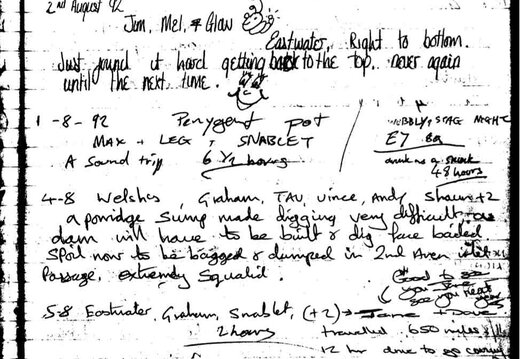 2nd August 92
Jim, Mel, & Glav
Eastwater, Right to bottom.
Just found it hard getting back to the top, never again
until the next time.
1-8-92 Penygent pot
MAX + LEG + SNABLET
A Sound trip 6 1/2 hours
WOBBLY, STAG NIGHT
E7
48 hours
4-8 Welshes, Graham, TAV, Vince, Andy, Shaun +2
a porridge sump made digging very difficult, a
dam will have to be built & dig face bailed
Spoil now to be bagged & dumped in 2nd Aven inlet
Passage, extremely Squalid.
Good to see
you Jane
see you next
year
5-8 Eastwater, Graham, Snablet, (+2) → Jane + Dave
2 hours
travelled 650 miles &
12 hr drive to go caving